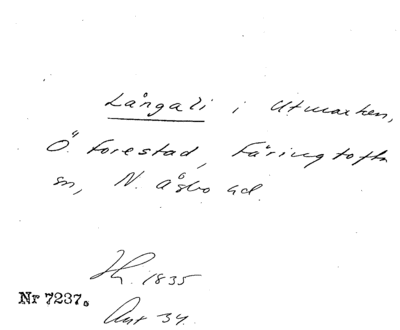 Långali i Utmarken,
Ö. Forestad, Färingtofta
sn, N. Åsbo hd.
1835
Nr 7237.
34.